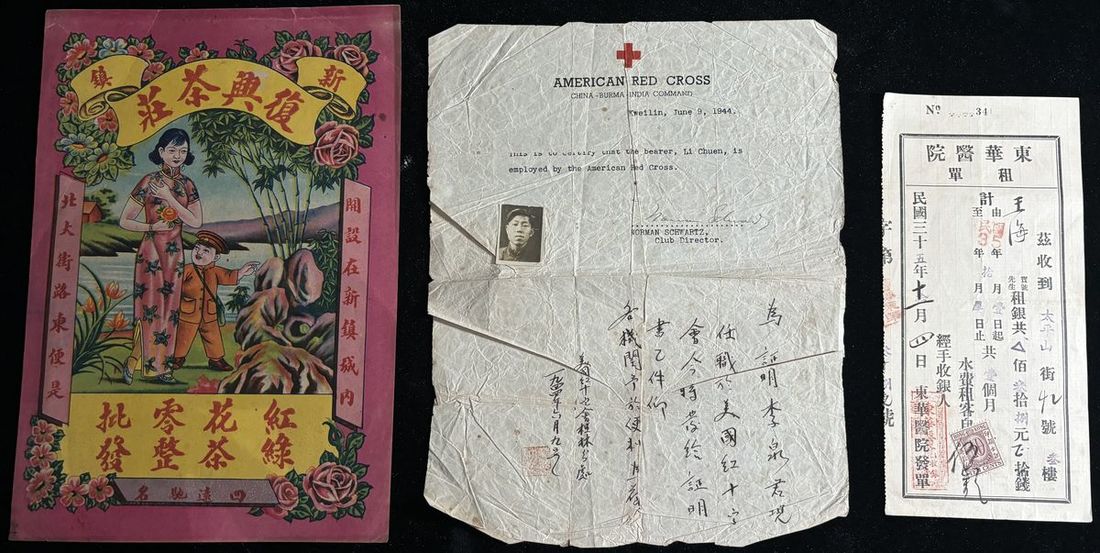 新鎮
復興茶莊
開設在新鎮城內
北大街路東便是
紅綠花茶零整批發
四遠馳名
AMERICAN RED CROSS
CHINA-BURMA-INDIA COMMAND
Kweilin, June 9, 1944.
This is to certify that the bearer, Li Chuen, is
employed by the American Red Cross.
NORMAN SCHWARTZ,
Club Director.
為證明李泉君現
任職於美國紅十字
會今特發給證明
書乙件仰
各機關予以便利為荷
美國紅十字會桂林分處
一九四四年六月九日
No 34
東華醫院
租單
茲收到太平山街九號叁樓
王海
寶號
先生
租銀共
佰
拾捌元
拾錢
計
由
5年拾月壹日起
至
年拾月
日止
共壹個月
水費租客自
經手收銀人
民國三十五年十一月四日
東華醫院發單
字第
號